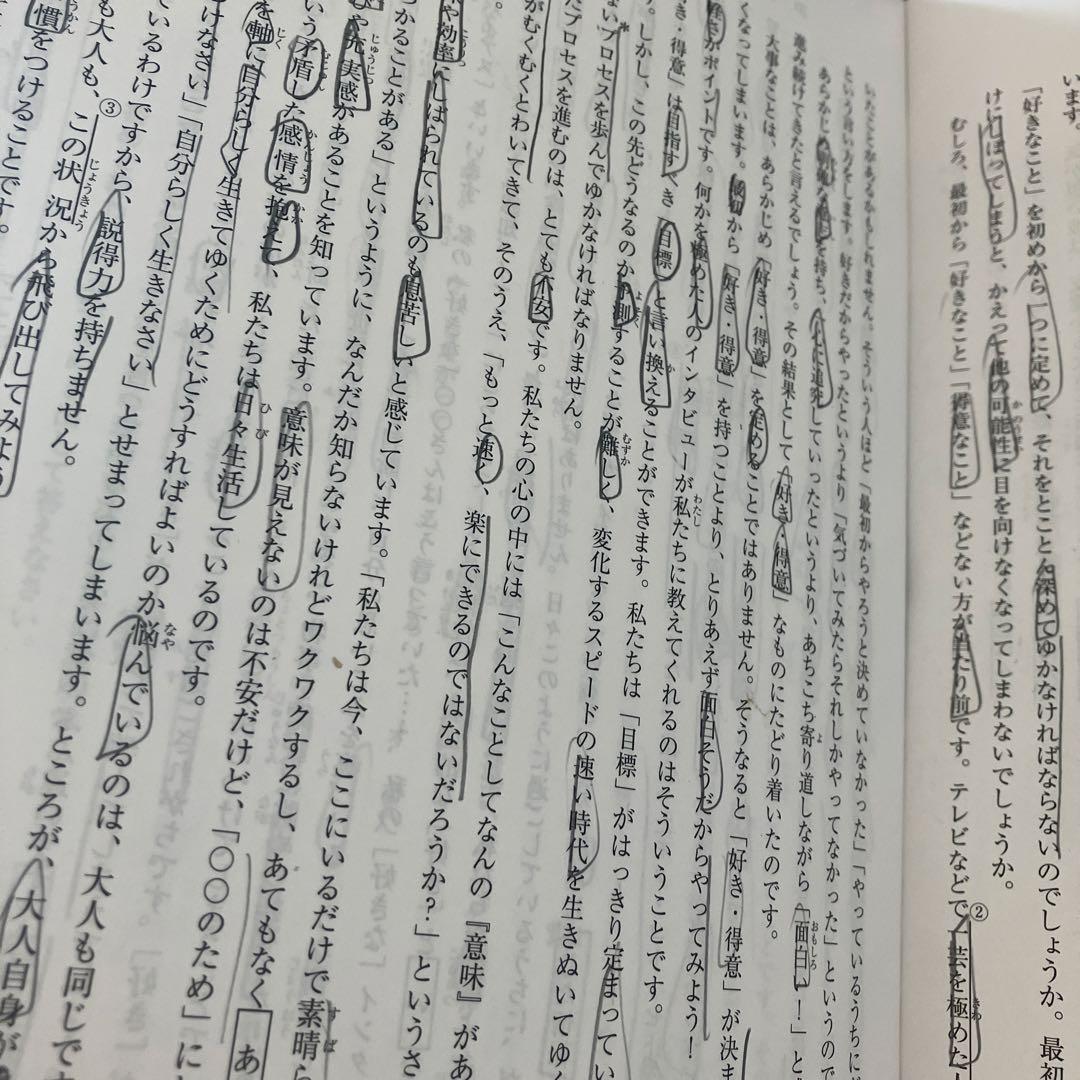 います。
「好きなこと」を初めから一つに定めて、それをとことん深めてゆかなければならないのでしょうか。最初
けにしぼってしまうと、かえって他の可能性に目を向けなくなってしまわないでしょうか。
むしろ、最初から「好きなこと」「得意なこと」などない方が当たり前です。テレビなどで②一芸を極めた
という言い方をします。好きだからやったというより「気づいてみたらそれしかやってなかった」というので
を持ち、心に道突していったというより、あちこち寄り道しながら「面白い！」と
進み続けてきたと言えるでしょう。その結果として「好き・得意」なものにたどり着いたのです。
大事なことは、あらかじめ「好き・得意」を定めることではありません。そうなると「好き・得意」が決ま
くなってしまいます。最初から「好き・得意」を持つことより、とりあえず面白そうだからやってみよう！
がポイントです。何かを極めた人のインタビューが私たちに教えてくれるのはそういうことです。
き・得意」は目指すべき「目標」と言い換えることができます。私たちは「目標」がはっきり定まってい
。しかし、この先どうなるのか予測することが難しく、変化するスピードの速い時代を生きぬいてゆ
ない*プロセスを歩んでゆかなければなりません。
たプロセスを進むのは、とても不安です。私たちの心の中には「こんなことしてなんの『意味』があ
がむくむくとわいてきて、そのうえ、「もっと速く、楽にできるのではないだろうか？」というさ
や効率にしばられているのも息苦しいと感じています。「私たちは今、ここにいるだけで素晴ら
つかることがある」というように、なんだか知らないけれどワクワクするし、あてもなくあ
や充実感があることを知っています。意味が見えないのは不安だけど、「〇〇のため」に
いう矛盾した感情を抱えて、私たちは日々生活しているのです。
を軸に自分らしく生きてゆくためにどうすればよいのか悩んでいるのは、大人も同じです
けなさい」「自分らしく生きなさい」とせまってしまいます。ところが、大人自身が
ているわけですから、説得力を持ちません。
も大人も、③この状況から飛び出してみよう
慣をつけることです。